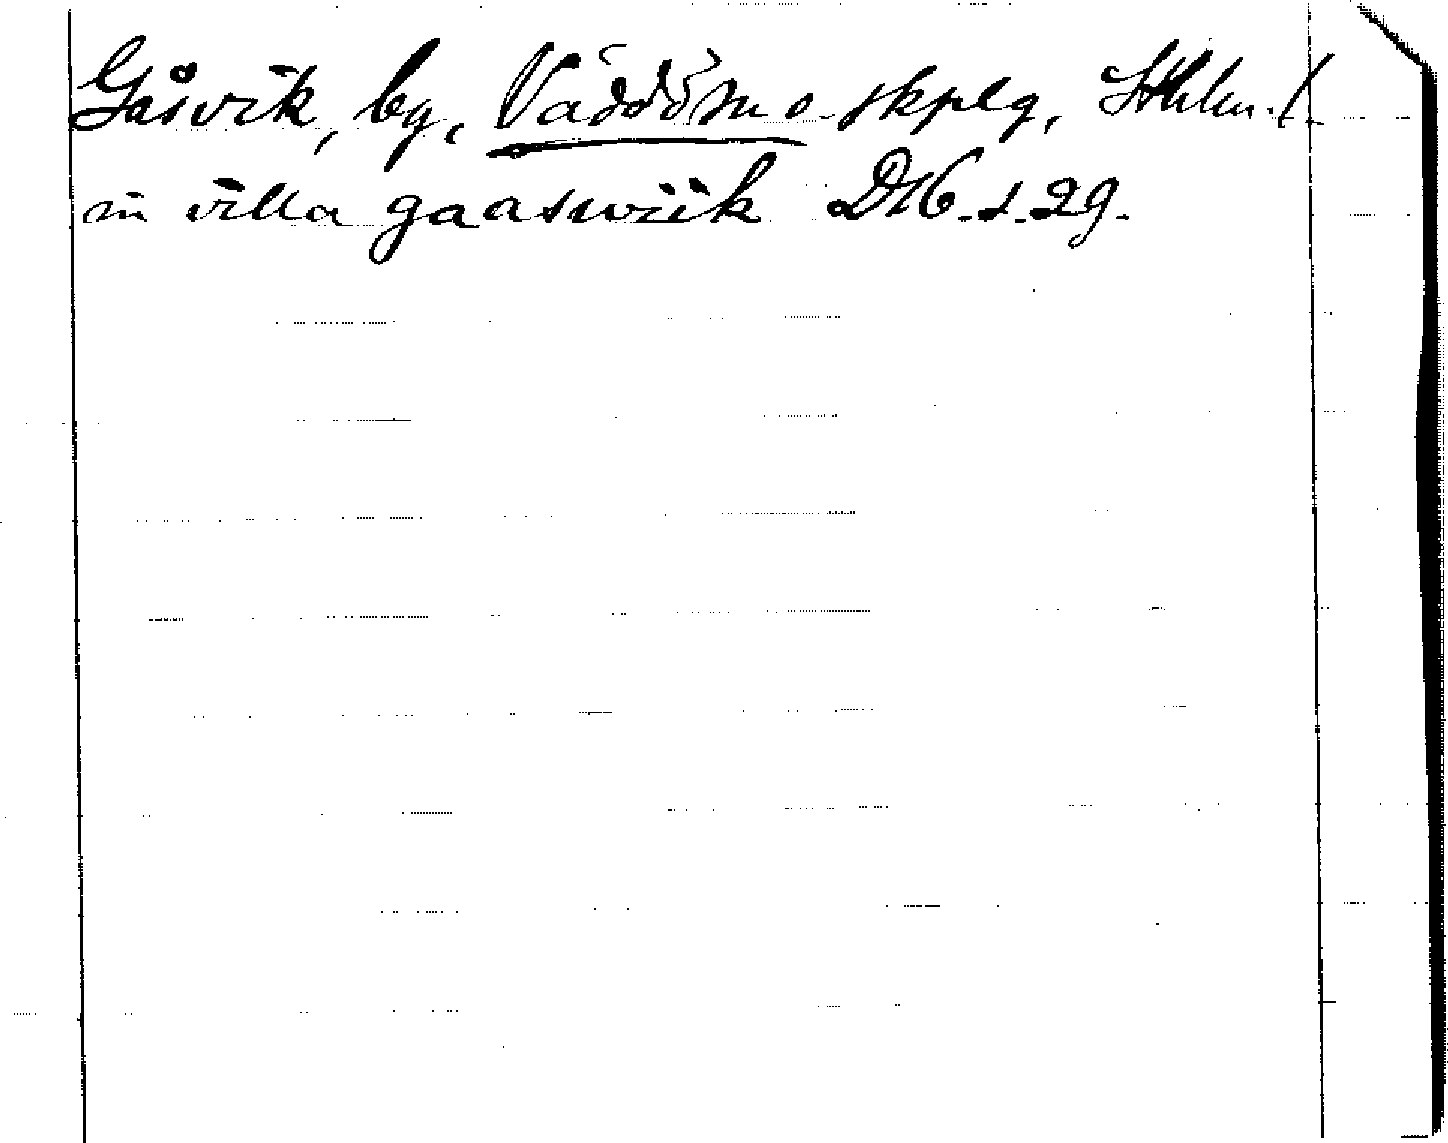 Gåsvik, by, Väddö sn o. skplg, Sthlm. l.
in villa gaaswiik DMS. 1. 29.